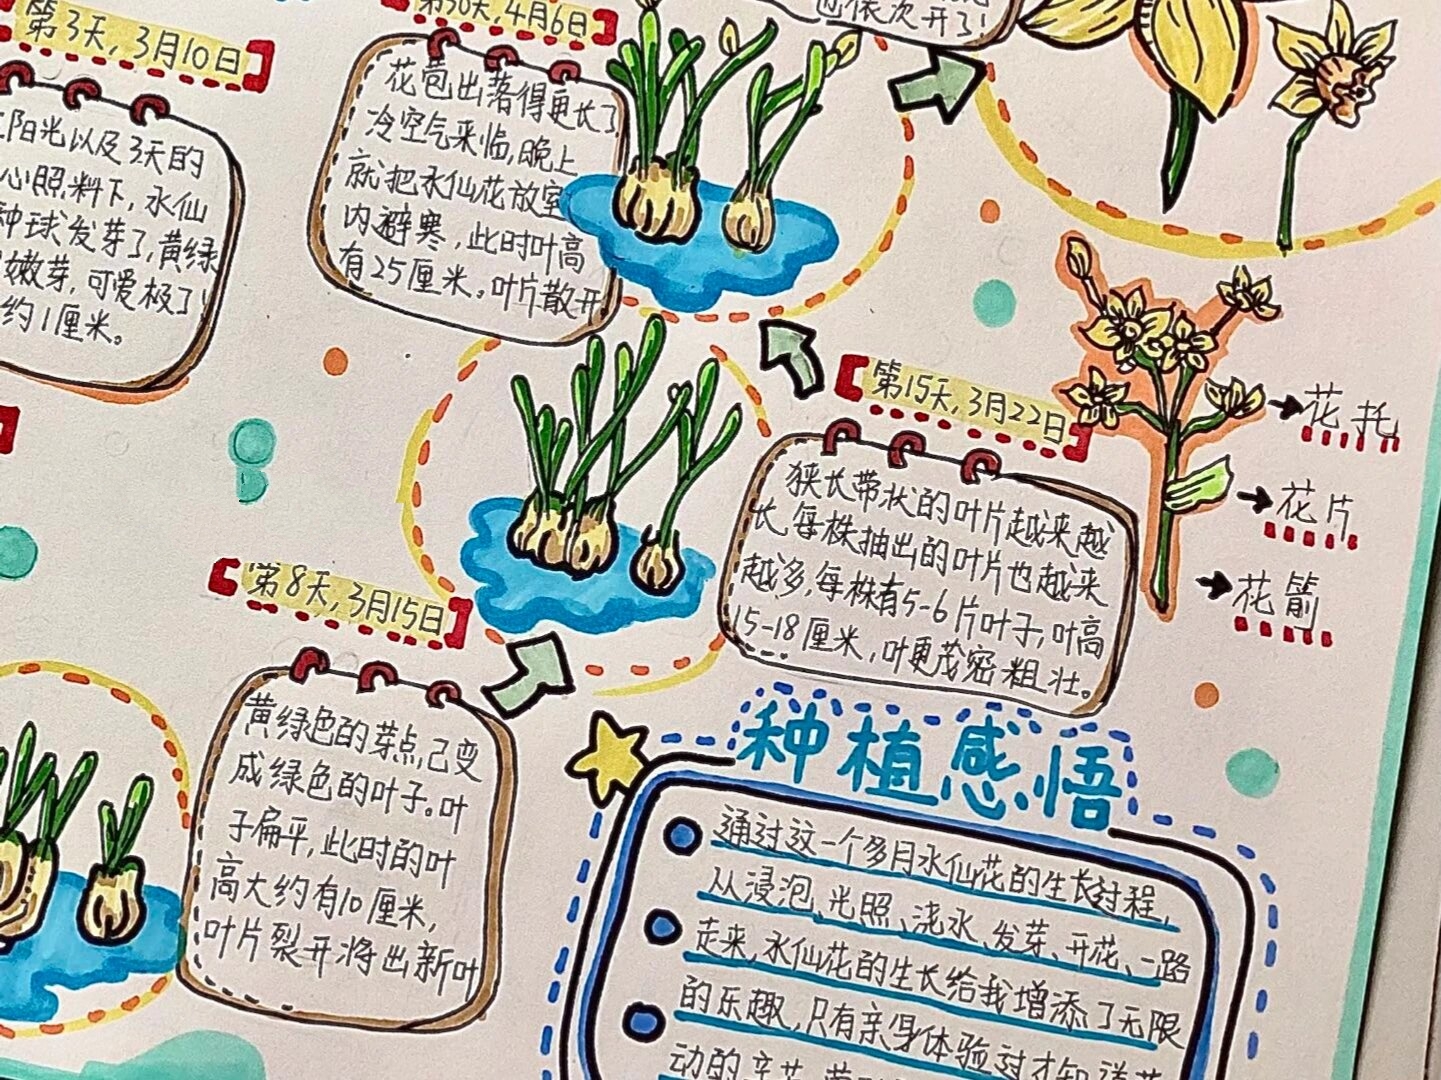 第3天,3月10日
阳光以及3天的
心照料下,水仙
种球发芽了,黄绿
嫩芽,可爱极了!
约1厘米。
第30天,4月6日
花苞出落得更长了
冷空气来临,晚上
就把水仙花放室
内避寒,此时叶高
有25厘米。叶片散开
依次开了!
第15天,3月22日
狭长带状的叶片越来越
长,每株抽出的叶片也越来
越多,每株有5-6片叶子,叶高
15-18厘米,叶更茂密粗壮。
花托
花片
花箭
第8天,3月15日
黄绿色的芽点,己变
成绿色的叶子。叶
子扁平,此时的叶
高大约有10厘米,
叶片裂开将出新叶
种植感悟
通过这一个多月水仙花的生长过程,
从浸泡、光照、浇水、发芽、开花、一路
走来,水仙花的生长给我增添了无限
的乐趣,只有亲身体验过才知道劳
动的辛苦